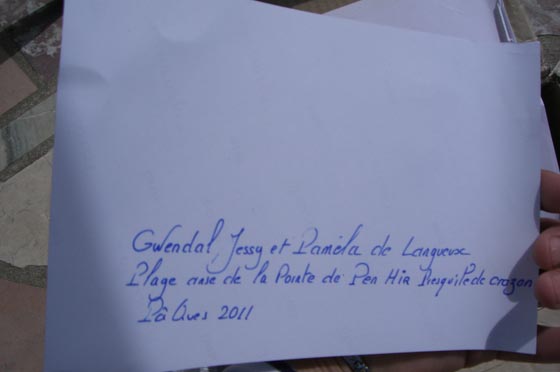 Gwendal, Jessy et Paméla de Langueux
Plage anse de la Pointe de Pen Hir Presqu'ile de crozon
Pâques 2011